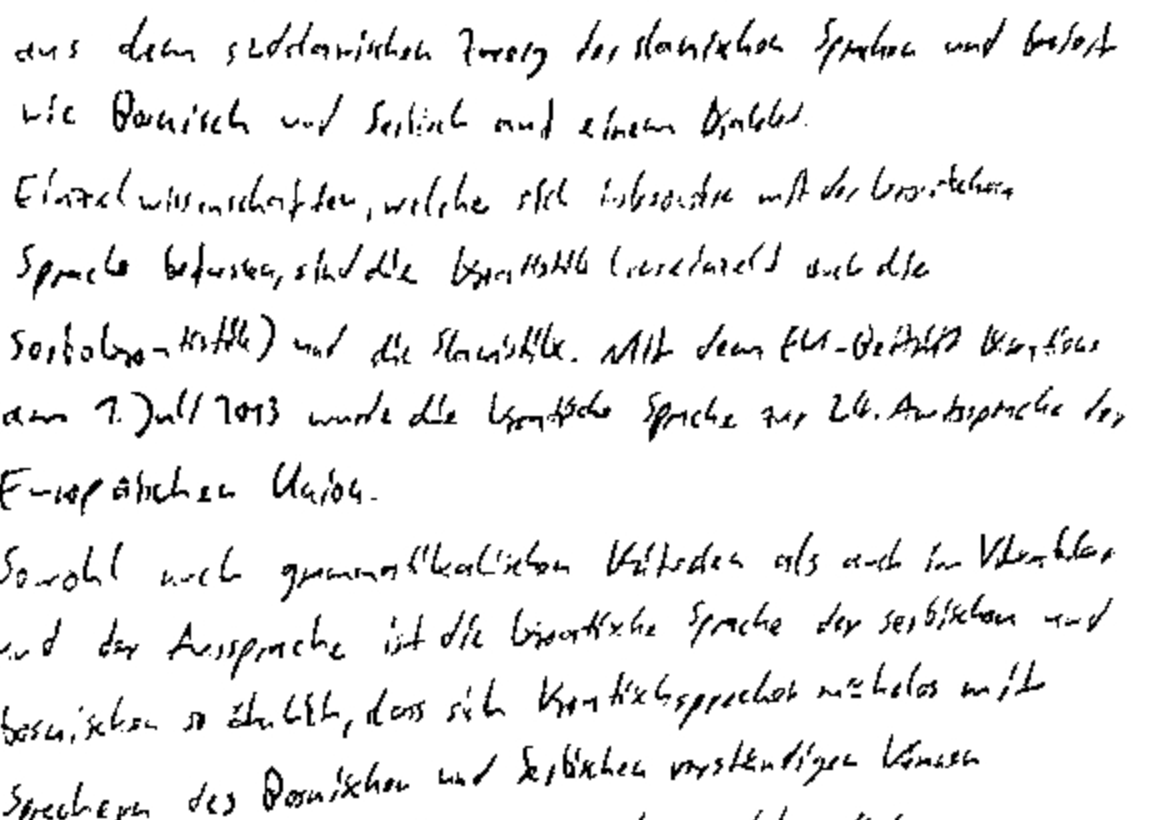 aus dem südslawischen Zweig der slawischen Sprachen und basiert
wie Bosnisch und Serbisch auf einem Dialekt.
Einzelwissenschaften, welche sich insbesondere mit der kroatischen
Sprache befassen, sind die Kroatistik (vereinzelt auch die
Serbokroatistik) und die Slawistik. Mit dem EU-Beitritt Kroatiens
am 1. Juli 2013 wurde die kroatische Sprache zur 24. Amtssprache der
Europäischen Union.
Sowohl nach grammatikalischen Kriterien als auch im Vokabular
und der Aussprache ist die kroatische Sprache der serbischen und
bosnischen so ähnlich, dass sich Kroatischsprecher mühelos mit
Sprechern des Bosnischen und Serbischen verständigen können